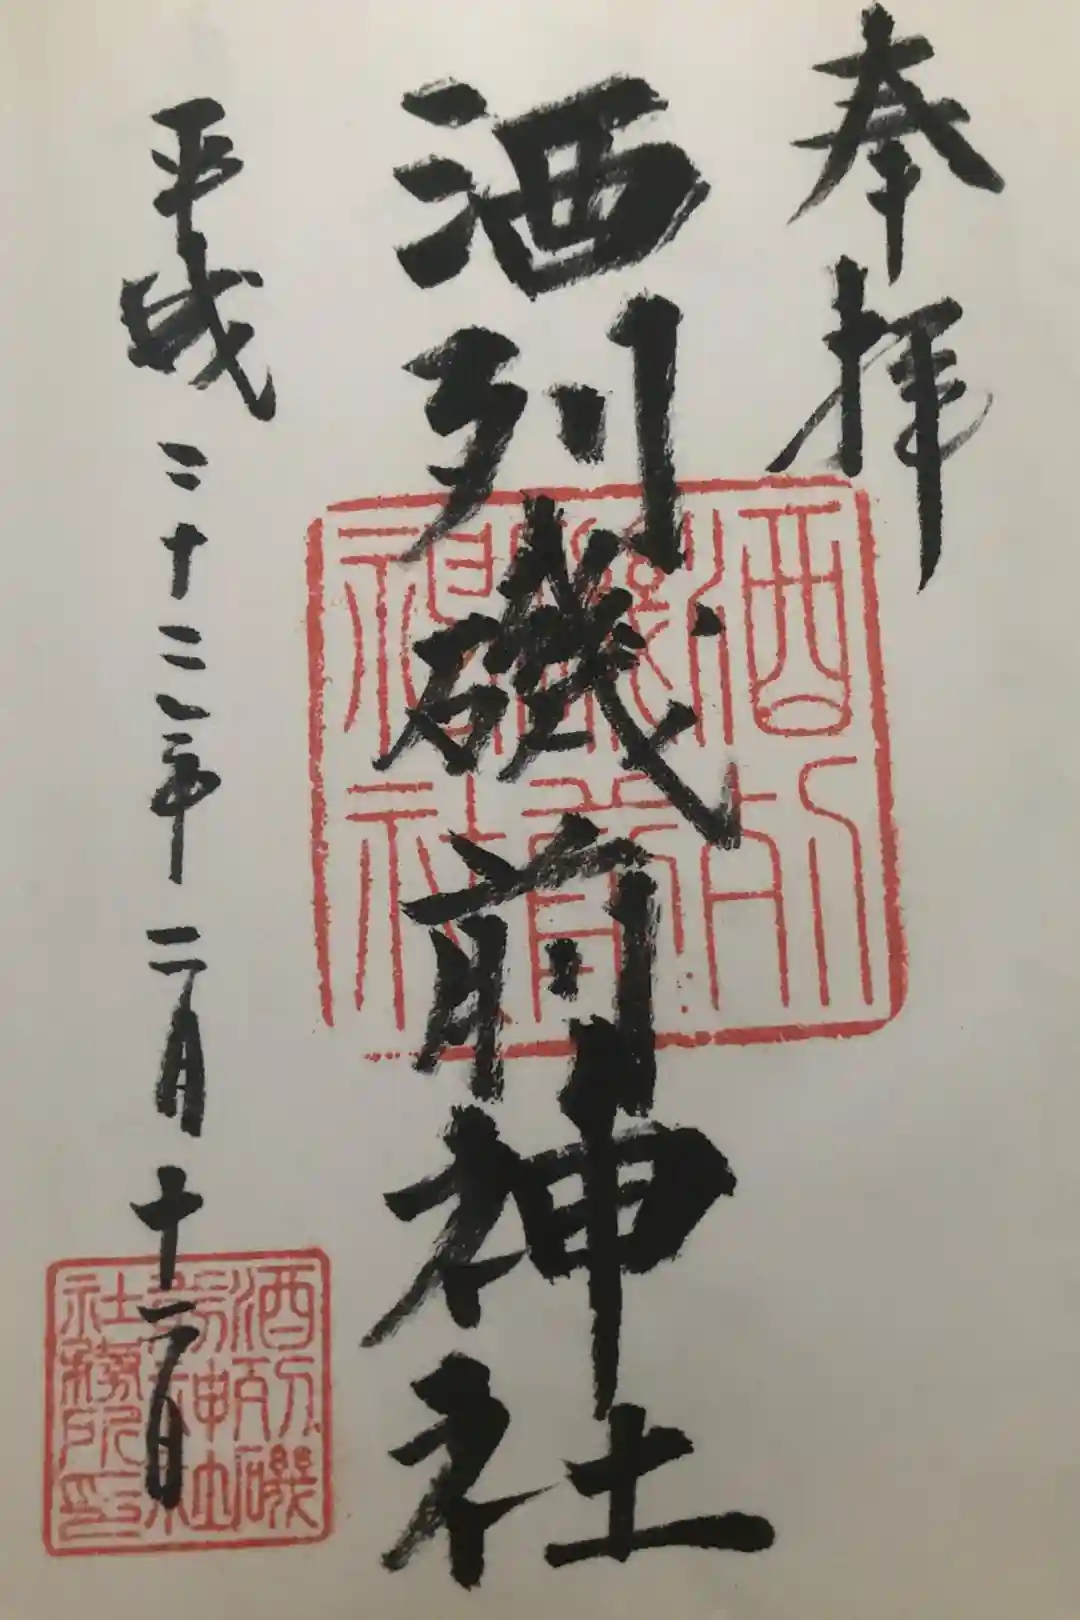 奉拝
酒列磯前神社
平成二十二年二月十一日
酒列
磯前
神社
酒列磯
前神社
社務所印